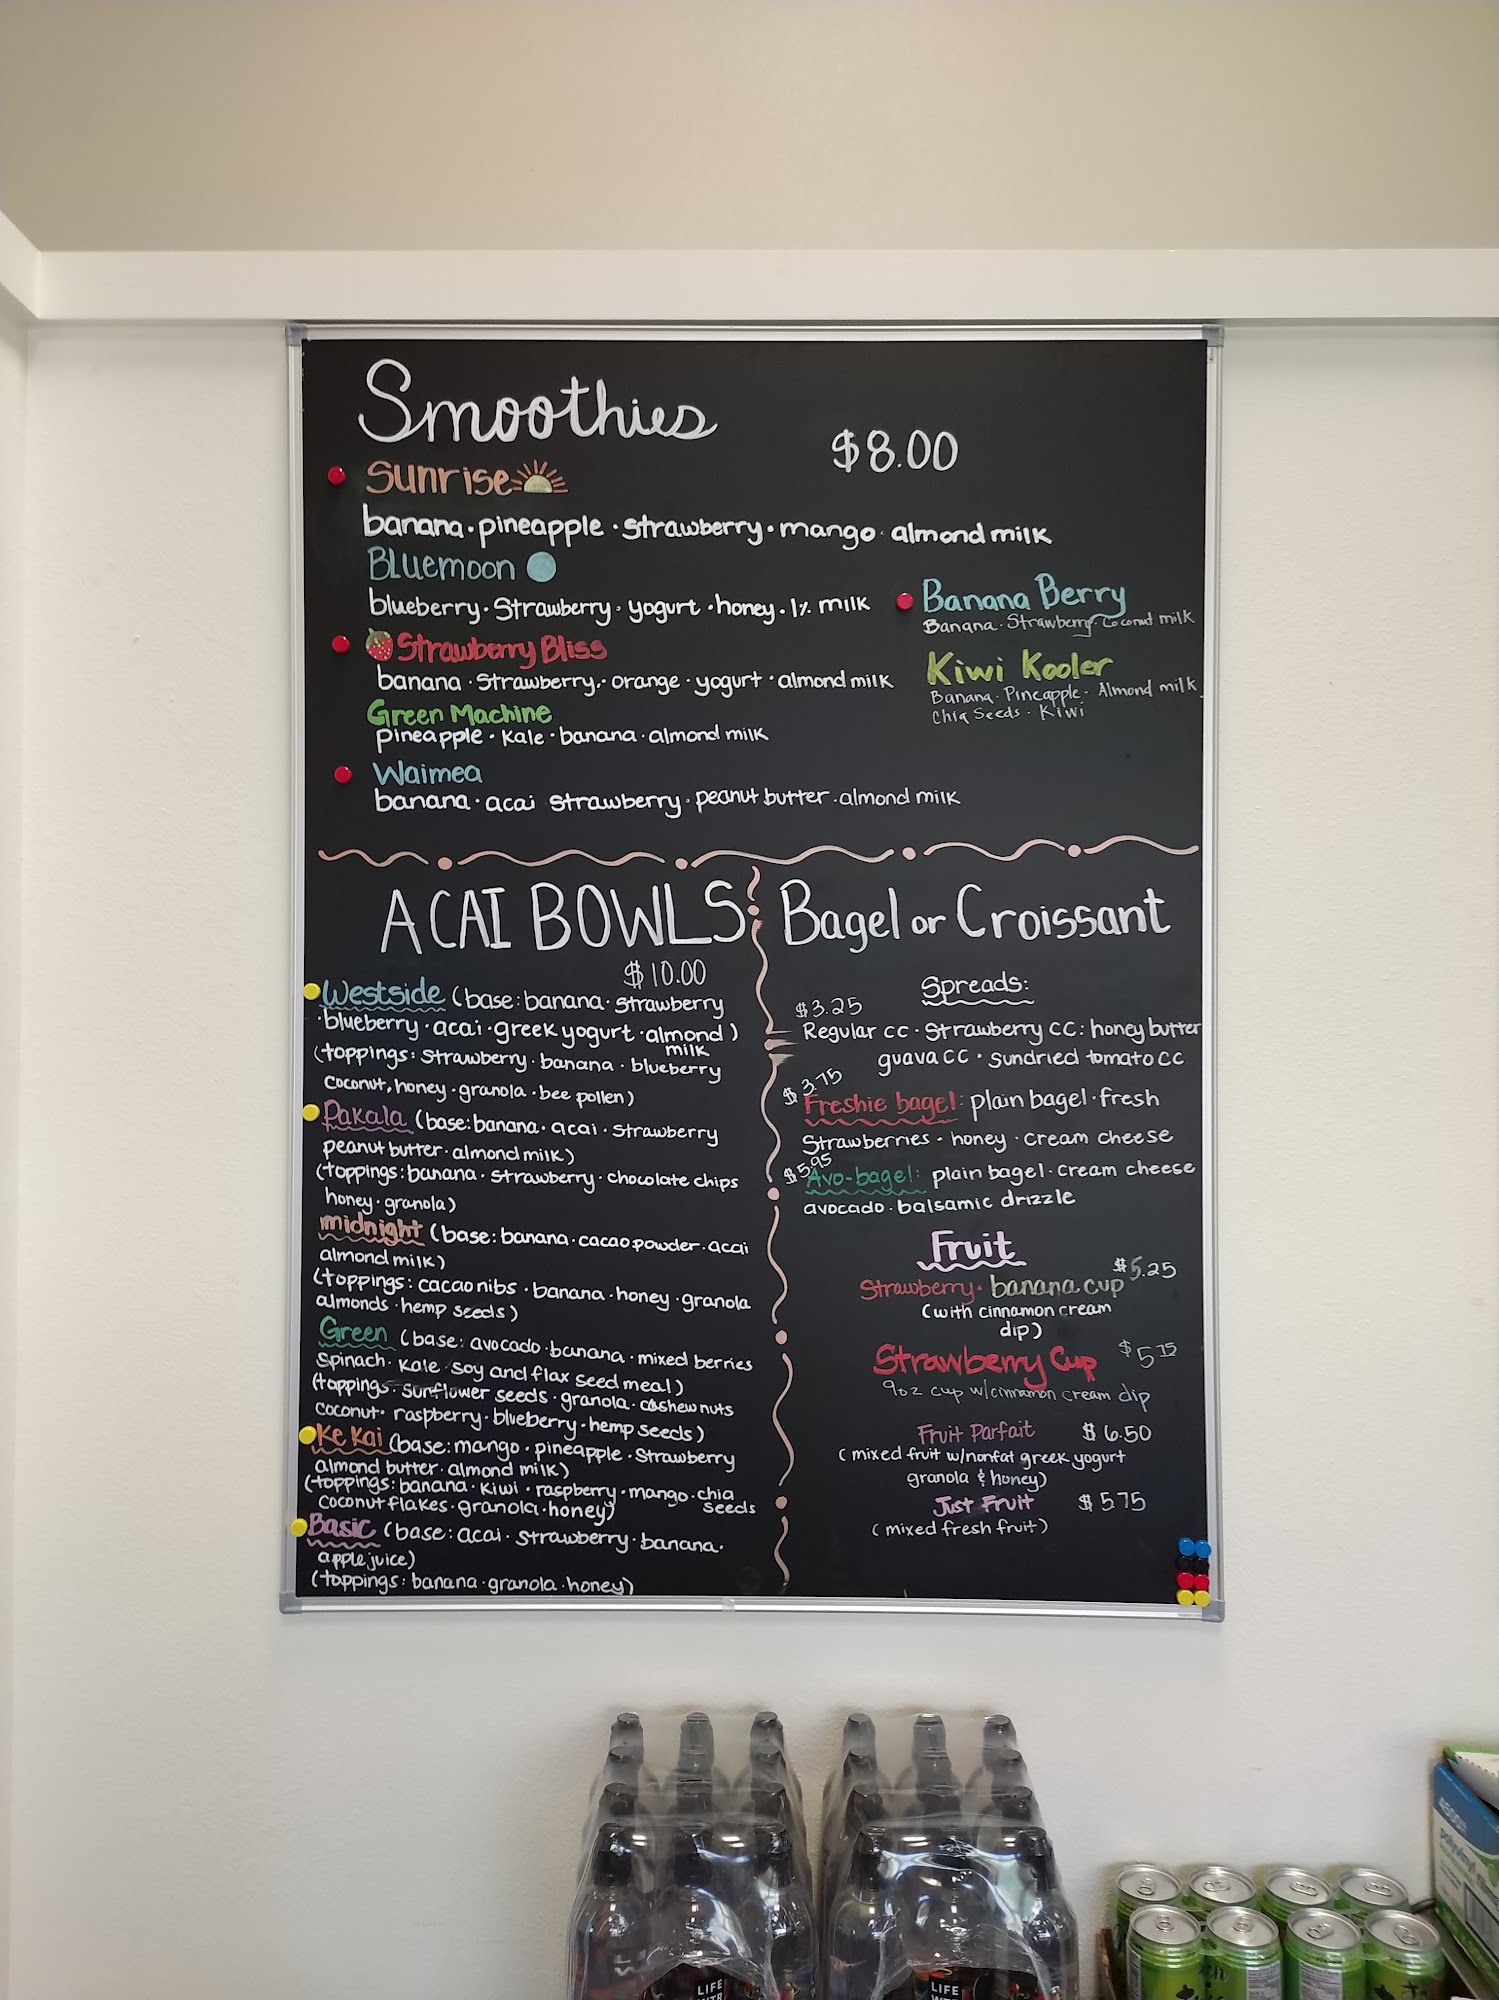 Smoothies
$8.00
Sunrise
banana · pineapple · strawberry · mango · almond milk
Bluemoon
blueberry · Strawberry · yogurt · honey · 1% milk
Strawberry Bliss
banana · Strawberry · orange · yogurt · almond milk
Green Machine
pineapple · kale · banana · almond milk
Waimea
banana · acai strawberry · peanut butter · almond milk
Banana Berry
Banana · Strawberry · Coconut milk
Kiwi Kooler
Banana · Pineapple · Almond milk
Chia Seeds · Kiwi
ACAI BOWLS
$10.00
Westside (base: banana · strawberry
· blueberry · acai · greek yogurt · almond )
milk
(toppings: strawberry · banana · blueberry
coconut, honey · granola · bee pollen)
Pakala (base: banana · acai · strawberry
peanut butter · almond milk)
(toppings: banana · strawberry · chocolate chips
honey · granola)
midnight (base: banana · cacao powder · acai
almond milk)
(toppings: cacao nibs · banana · honey · granola
almonds · hemp seeds)
Green (base: avocado · banana · mixed berries
spinach · kale · soy and flax seed meal)
(toppings: sunflower seeds · granola · cashew nuts
coconut · raspberry · blueberry · hemp seeds)
Ke Kai (base: mango · pineapple · strawberry
almond butter · almond milk)
(toppings: banana · kiwi · raspberry · mango · chia
seeds
coconut flakes · granola · honey)
Basic (base: acai · strawberry · banana ·
apple juice)
(toppings: banana · granola · honey)
Bagel or Croissant
Spreads:
$3.25
Regular cc · Strawberry cc: honey butter
guava cc · sundried tomato cc
$3.75
Freshie bagel: plain bagel · fresh
Strawberries · honey · cream cheese
$5.95
Avo-bagel: plain bagel · cream cheese
avocado · balsamic drizzle
Fruit
$5.25
Strawberry · banana cup
(with cinnamon cream
dip)
Strawberry Cup $5 75
9oz cup w/cinnamon cream dip
Fruit Parfait $6.50
(mixed fruit w/nonfat greek yogurt
granola & honey)
Just Fruit $5 75
(mixed fresh fruit)
LIFE
WTR
LIFE
WTR